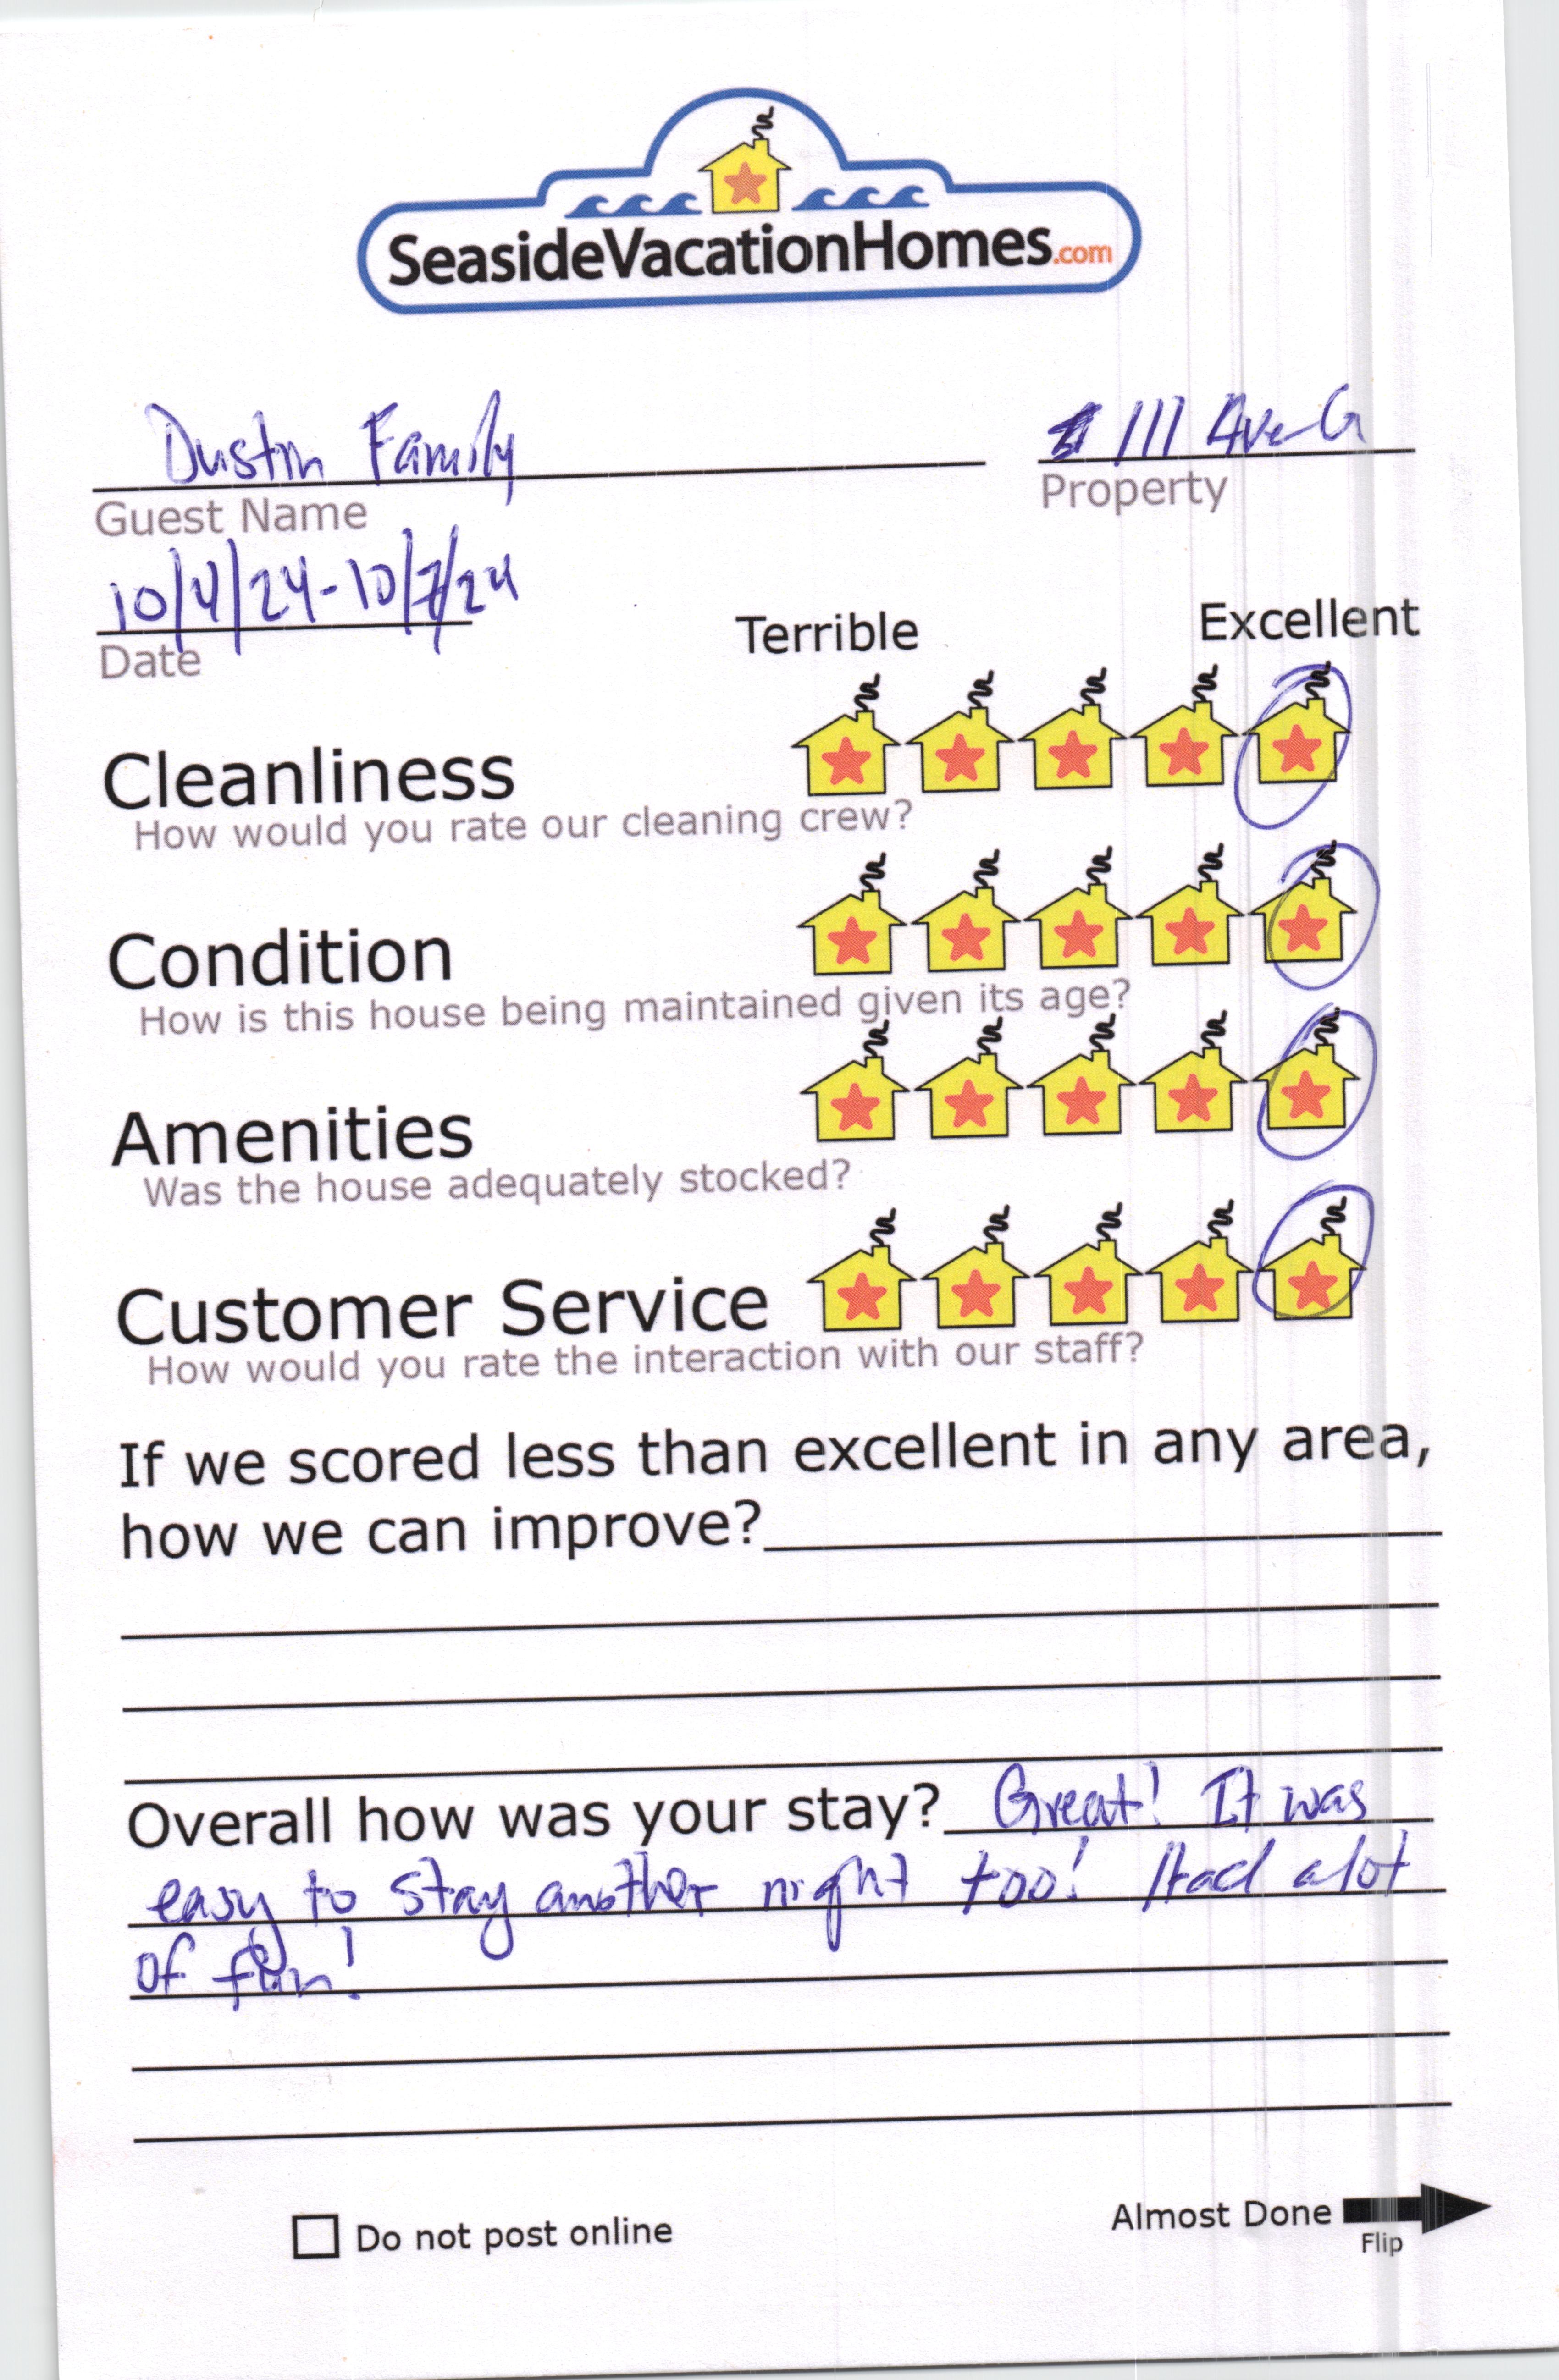 SeasideVacationHomes.com
Dustin Family 111 Ave G
Guest Name Property
10/4/24-10/7/24
Date
Terrible Excellent
Cleanliness
How would you rate our cleaning crew?
Condition
How is this house being maintained given its age?
Amenities
Was the house adequately stocked?
Customer Service
How would you rate the interaction with our staff?
If we scored less than excellent in any area,
how we can improve?
Overall how was your stay? Great! It was
easy to stay another night too! Had a lot
of fun!
Do not post online
Almost Done
Flip